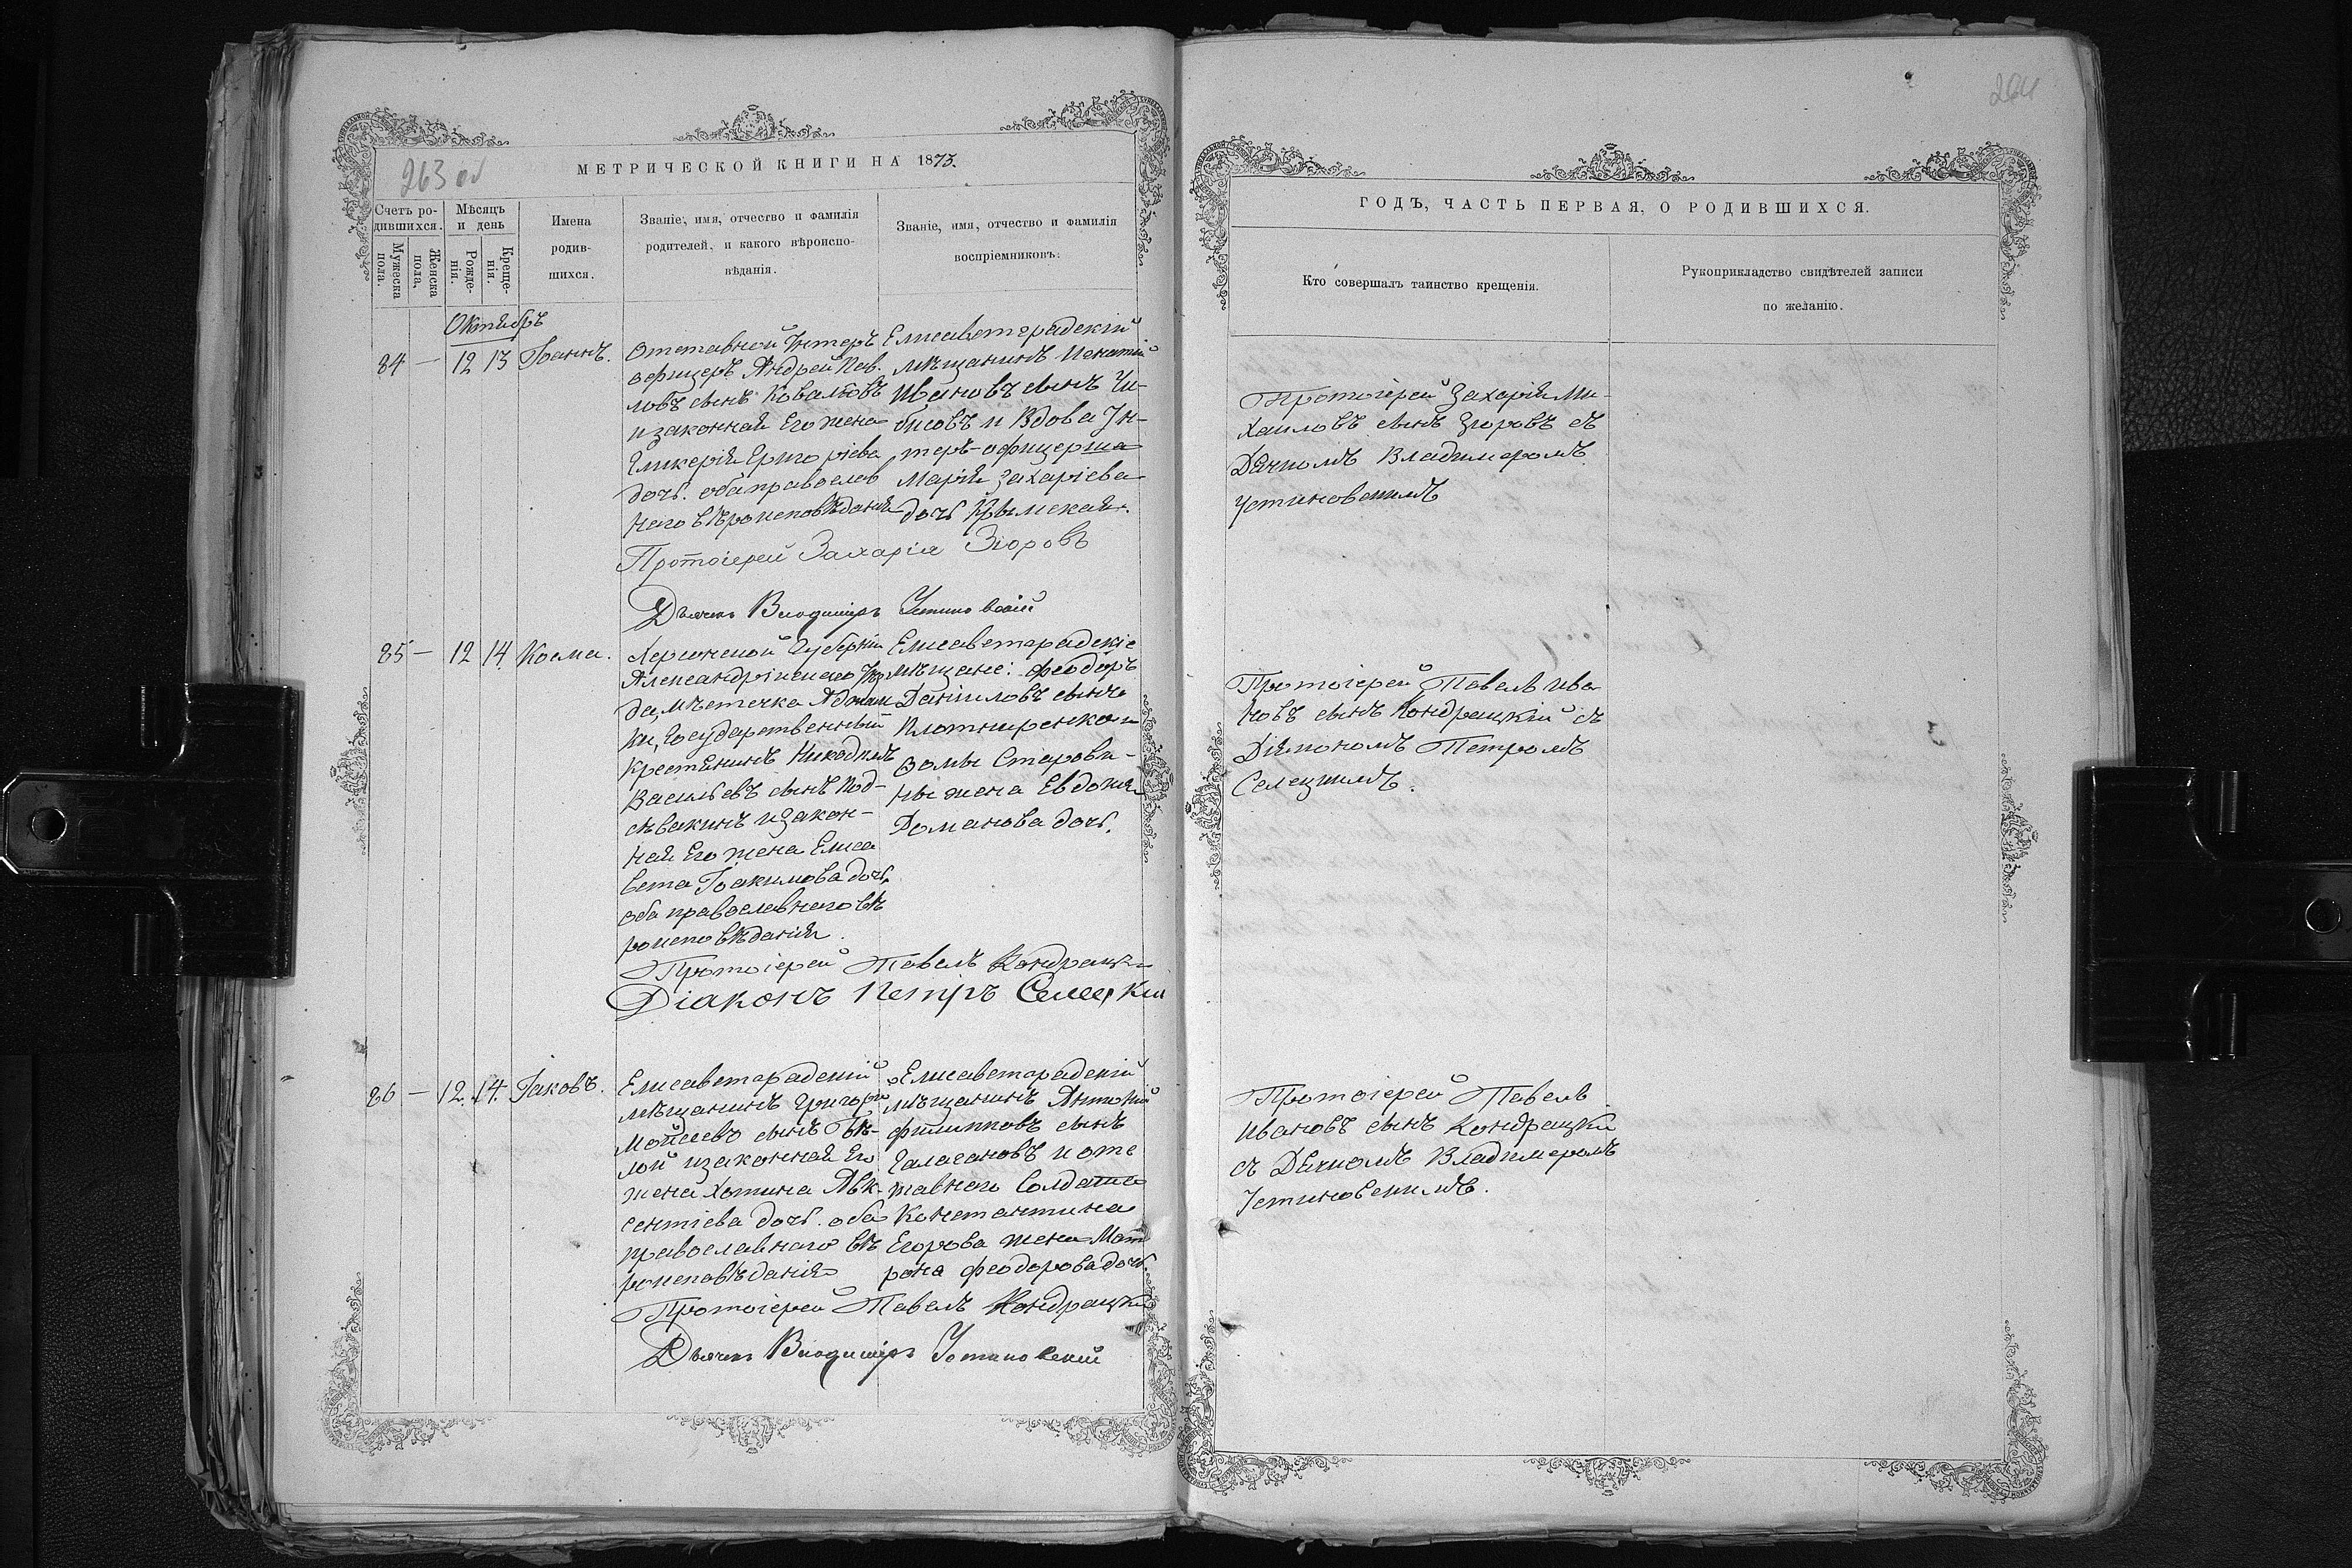 263 об
МЕТРИЧЕСКОЙ КНИГИ НА 1875.
Счетъ ро-
дившихся.
Мужеска
пола.
Женска
пола,
Мѣсяцъ
и день
Рожде-
нія.
Креще-
нія.
Имена
родив-
шихся.
Званіе, имя, отчество и фамилія
родителей, и какого вѣроиспо-
вѣданія.
Званіе, имя, отчество и фамилія
воспріемниковъ.
Октябрь
84 — 12 13 Іоаннъ.
Отставной Унтеръ
офицеръ Андрей Пав-
ловъ сынъ Ковальовъ
и законная Его жена
Гликерія Григоріева
дочь. оба православ
наго вѣроисповѣданія
Елисаветградскій
мѣщанинъ Игнатій
Ивановъ сынъ Чи-
бисовъ и Вдова Ун-
теръ-офицерша
Марія Захаріева
дочь Крымская.
Протоіерей Захарія Зіоровъ
Дьячекъ Владимиръ Устиновскій
85 — 12 14 Косма.
Херсонской Губерніи
Александрійскаго Уѣз
да, мѣстечка Адами
ки, Государственный
Крестянинъ Никодимъ
Васильевъ сынъ Под-
сѣвакинъ и закон-
ная Его жена Елиса
вета Іоакимова дочь,
оба православнаго вѣ
роисповѣданія.
Елисаветградскіе
мѣщане: Феодоръ
Даніиловъ сынъ
Плотниренко и
Фомы Старови-
ны жена Евдокия
Романова дочь.
Протоіерей Павелъ Кондрацкі
Діаконъ Петръ Селецкій
86 — 12. 14. Іаковъ.
Елисаветградскій
мѣщанинъ Григорій
Мойсеевъ сынъ Бѣ-
лой и законная Его
жена Хотина Авк-
сентіева дочь. оба
православнаго вѣ
роисповѣданія
Елисаветградскій
мѣщанинъ Антоній
Филипповъ сынъ
Галагановъ и отс
тавнаго Солдата
Константина
Егорова жена Мат
рона Феодорова дочь.
Протоіерей Павелъ Кондрацкій
Дьячекъ Владимиръ Устиновскій
264
ГОДЪ, ЧАСТЬ ПЕРВАЯ, О РОДИВШИХСЯ.
Кто совершалъ таинство крещенія.
Рукоприкладство свидѣтелей записи
по желанію.
Протоіерей Захарія Ми-
хаиловъ сынъ Зіоровъ съ
Дячкомъ Владимеромъ
Устиновскимъ
Протоіерей Павелъ Ива
новъ сынъ Кондрацкій съ
Діякономъ Петромъ
Селецкимъ.
Протоіерей Павелъ
Ивановъ сынъ Кондрацкій
съ Дячкомъ Владимеромъ
Устиновскимъ.